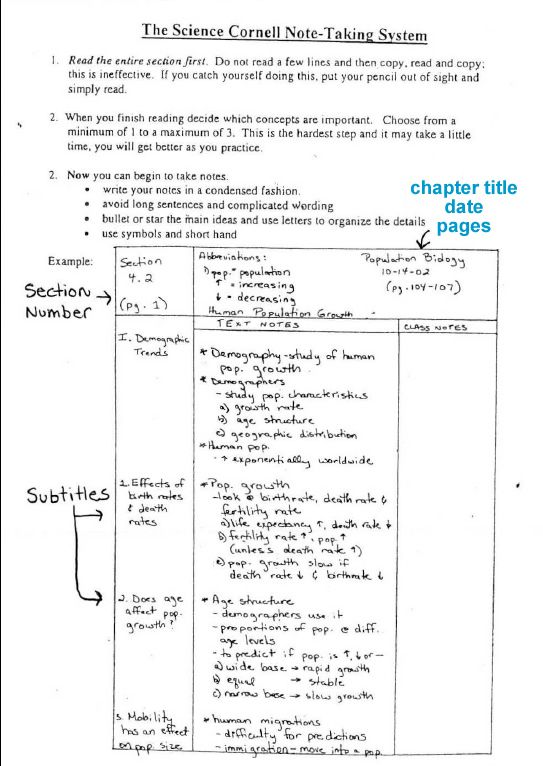 The Science Cornell Note-Taking System
1. Read the entire section first. Do not read a few lines and then copy, read and copy;
this is ineffective. If you catch yourself doing this, put your pencil out of sight and
simply read.
2. When you finish reading decide which concepts are important. Choose from a
minimum of 1 to a maximum of 3. This is the hardest step and it may take a little
time, you will get better as you practice.
2. Now you can begin to take notes.
• write your notes in a condensed fashion.
• avoid long sentences and complicated wording
• bullet or star the main ideas and use letters to organize the details
• use symbols and short hand
chapter title
date
pages
Example:
Section
Number
Section
4.2
(pg. 1)
Abbreviations:
"pop." population
↑ = increasing
↓ = decreasing
Human Population Growth
Population Biology
10-14-02
(pg. 104-107)
TEXT NOTES
CLASS NOTES
I. Demographic
Trends
* Demography-study of human
pop. growth.
* Demographers
- study pop. characteristics
a) growth rate
b) age structure
c) geographic distribution
* Human pop.
- ↑ exponentially worldwide
Subtitles
1. Effects of
birth rates
& death
rates
* Pop. growth
-look @ birthrate, death rate &
fertility rate
a) life expectancy ↑, death rate ↓
b) fertility rate ↑, pop. ↑
(unless death rate ↑)
c) pop. growth slow if
death rate ↓ & birthrate ↓
2. Does age
affect pop.
growth?
* Age structure
- demographers use it
- proportions of pop. @ diff.
age levels
- to predict if pop. is ↑, ↓ or —
a) wide base → rapid growth
b) equal → stable
c) narrow base → slow growth
3. Mobility
has an effect
on pop. size
* human migrations
- difficulty for predictions
- immigration - move into a pop.